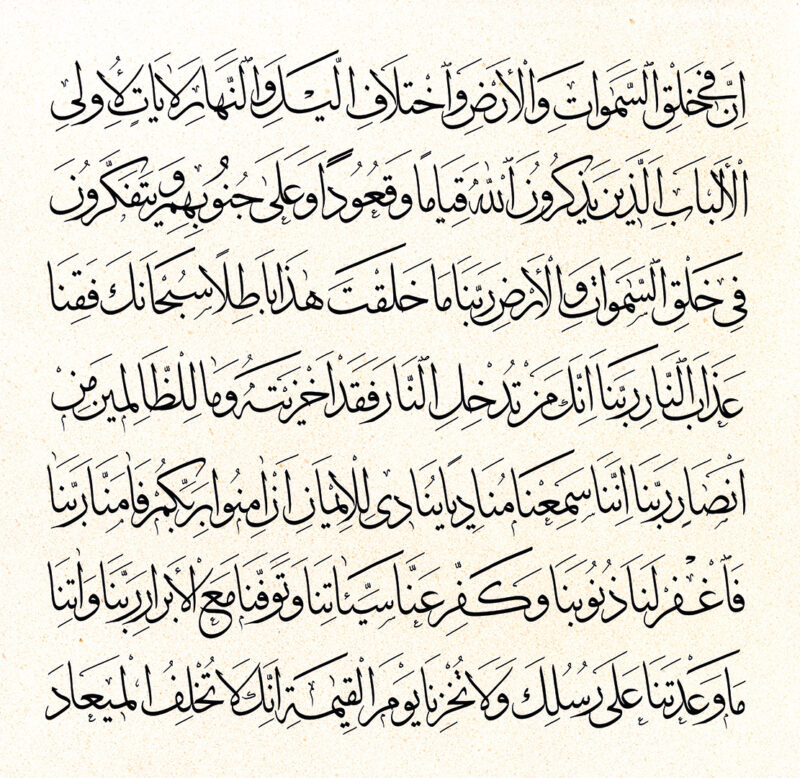 اِنَّ فِي خَلْقِ السَّمٰوَاتِ وَالْأَرْضِ وَاخْتِلَافِ الَّيْلِ وَالنَّهَارِ لَاٰيَاتٍ لِأُولِى
الْأَلْبَابِ الَّذِينَ يَذْكُرُونَ اللّٰهَ قِيَامًا وَقُعُودًا وَعَلٰى جُنُوبِهِمْ وَيَتَفَكَّرُونَ
فِى خَلْقِ السَّمٰوَاتِ وَالْأَرْضِ رَبَّنَا مَا خَلَقْتَ هٰذَا بَاطِلًا سُبْحَانَكَ فَقِنَا
عَذَابَ النَّارِ رَبَّنَا اِنَّكَ مَنْ تُدْخِلِ النَّارَ فَقَدْ اَخْزَيْتَهُ وَمَا لِلظَّالِمِينَ مِنْ
اَنْصَارٍ رَبَّنَا اِنَّنَا سَمِعْنَا مُنَادِيًا يُنَادِى لِلْاِيمَانِ اَنْ اٰمِنُوا بِرَبِّكُمْ فَاٰمَنَّا رَبَّنَا
فَاغْفِرْ لَنَا ذُنُوبَنَا وَكَفِّرْ عَنَّا سَيِّئَاتِنَا وَتَوَفَّنَا مَعَ الْأَبْرَارِ رَبَّنَا وَاٰتِنَا
مَا وَعَدْتَنَا عَلٰى رُسُلِكَ وَلَا تُخْزِنَا يَوْمَ الْقِيٰمَةِ اِنَّكَ لَا تُخْلِفُ الْمِيعَادَ